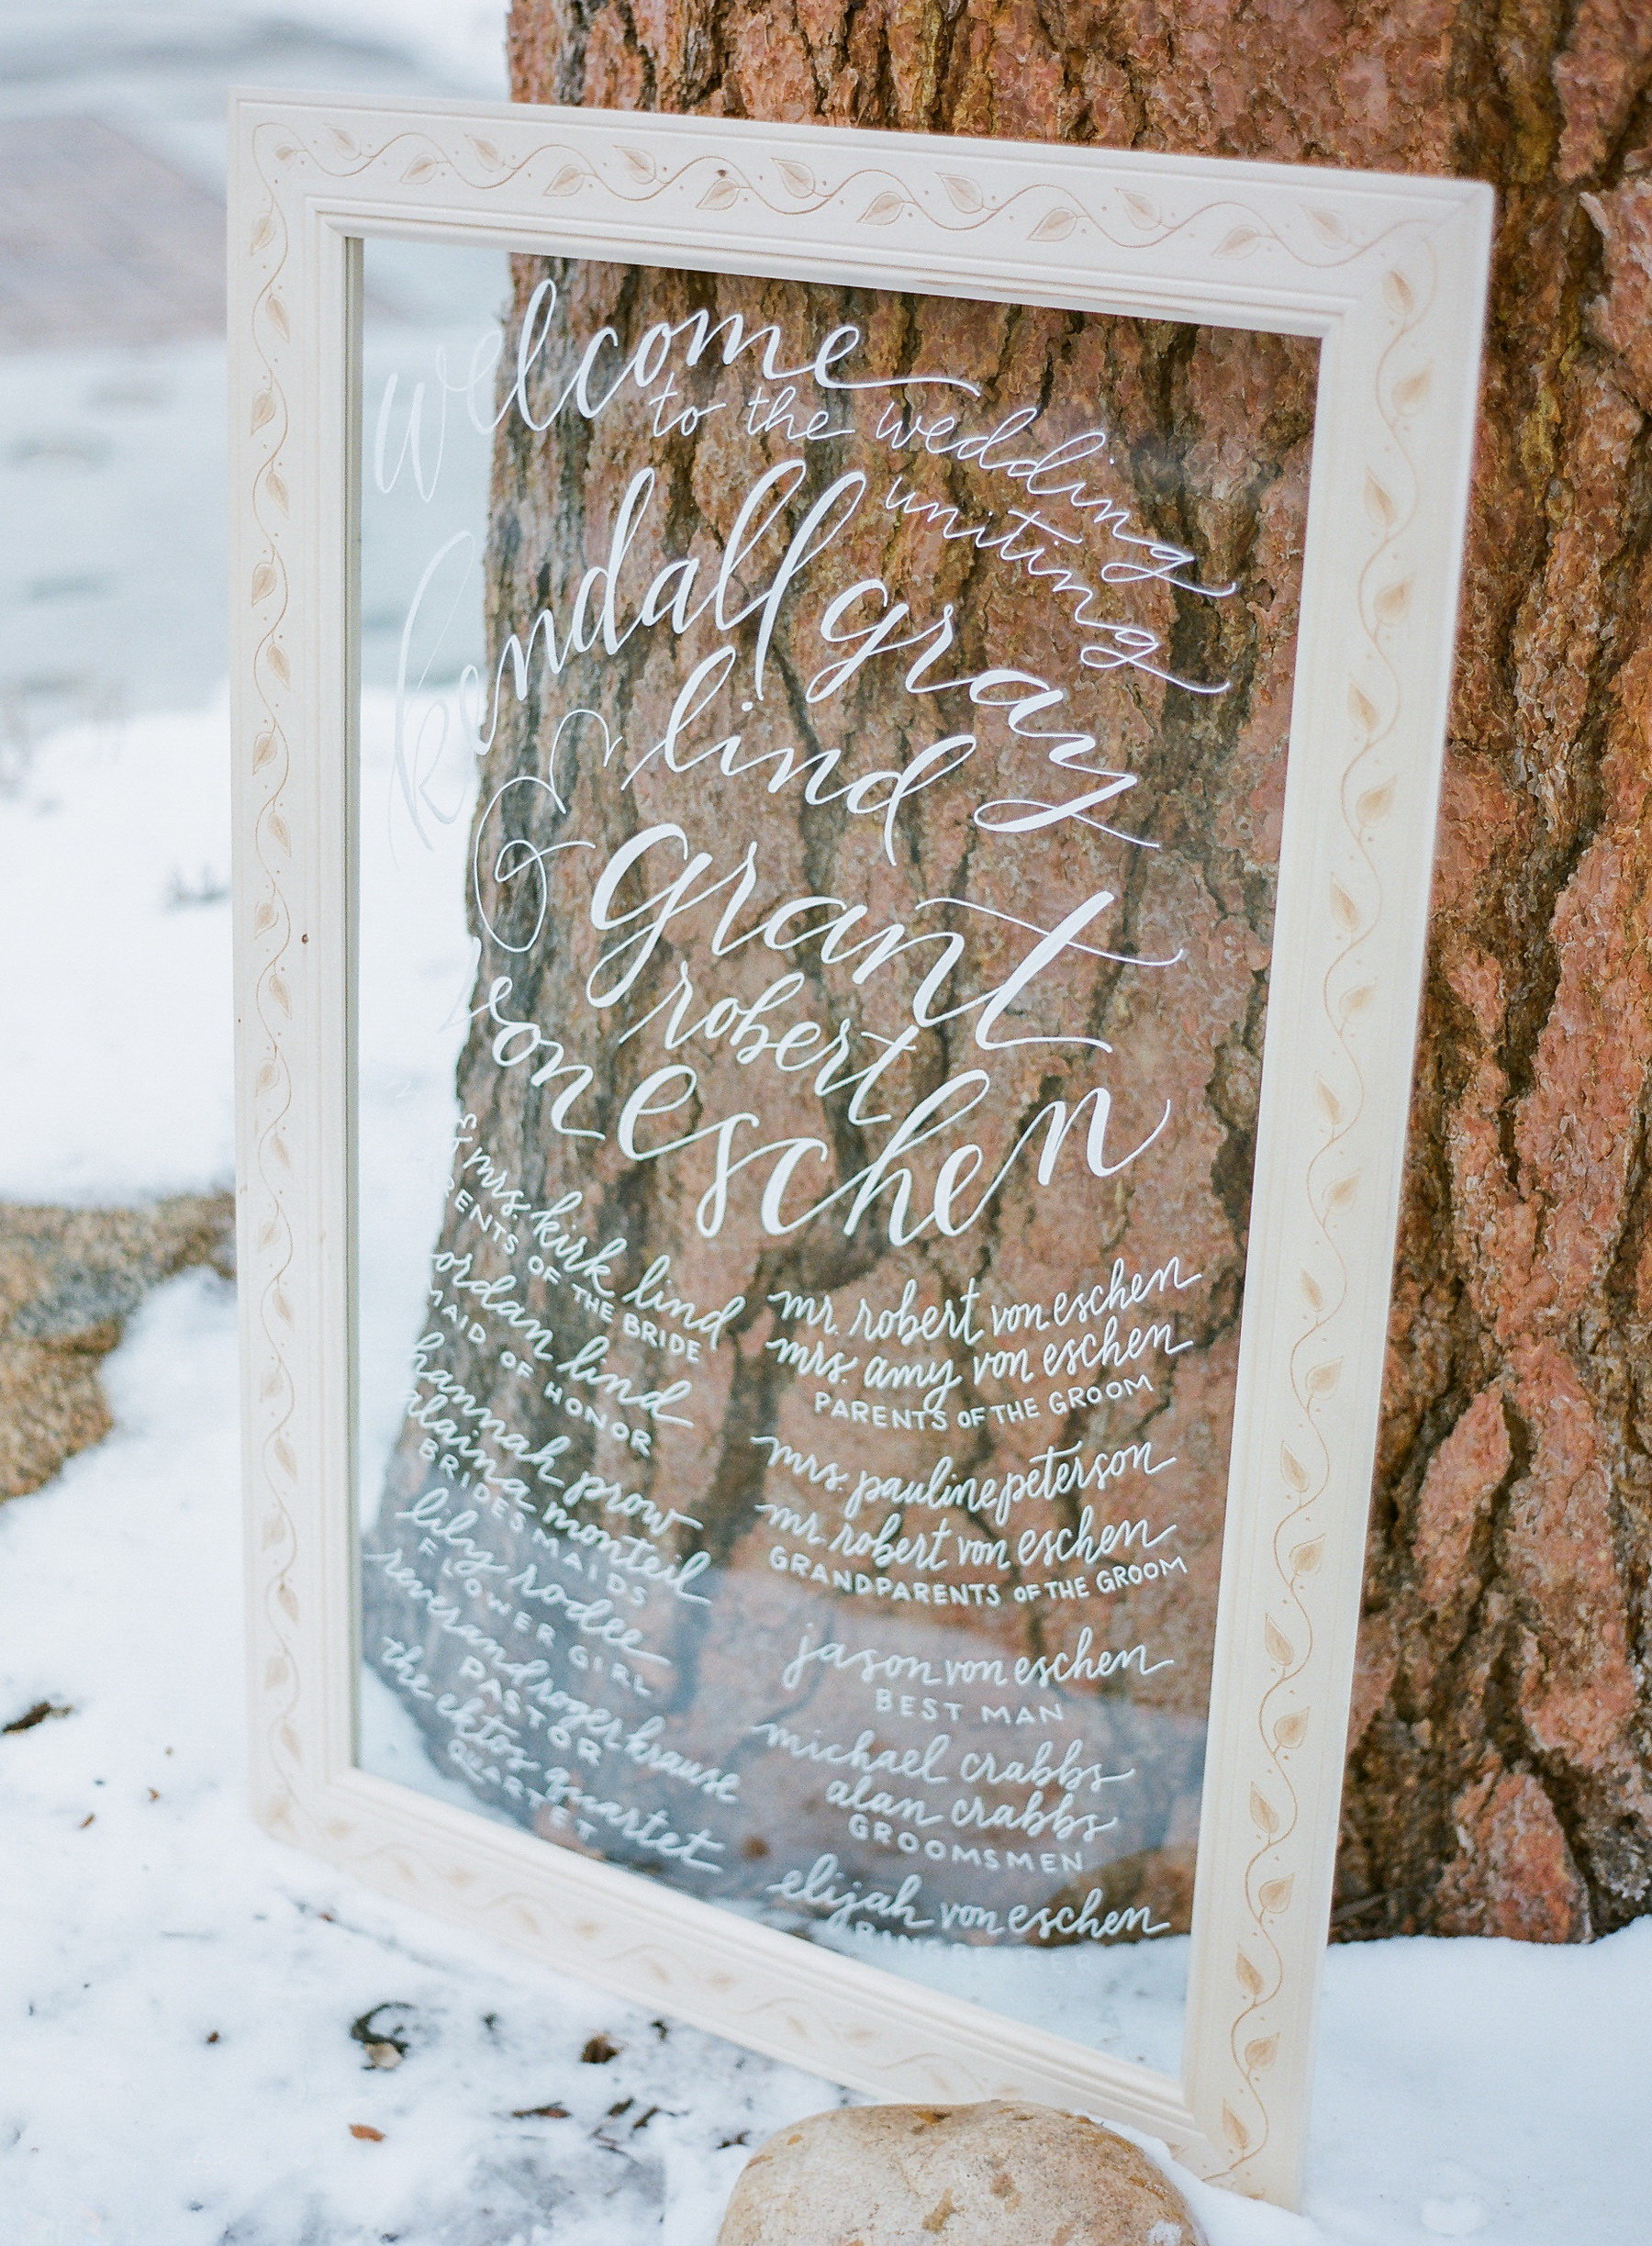 welcome
to the wedding
uniting
kendall gray
lind
&
grant
robert
von eschen
& mrs. kirk lind
PARENTS OF THE BRIDE
jordan lind
MAID OF HONOR
hannah prow
alaina monteil
BRIDESMAIDS
lily rodee
FLOWER GIRL
reverand roger krause
PASTOR
the ektos quartet
QUARTET
mr. robert von eschen
mrs. amy von eschen
PARENTS OF THE GROOM
mrs. pauline peterson
mr. robert von eschen
GRANDPARENTS OF THE GROOM
jason von eschen
BEST MAN
michael crabbs
alan crabbs
GROOMSMEN
elijah von eschen
RING BEARER